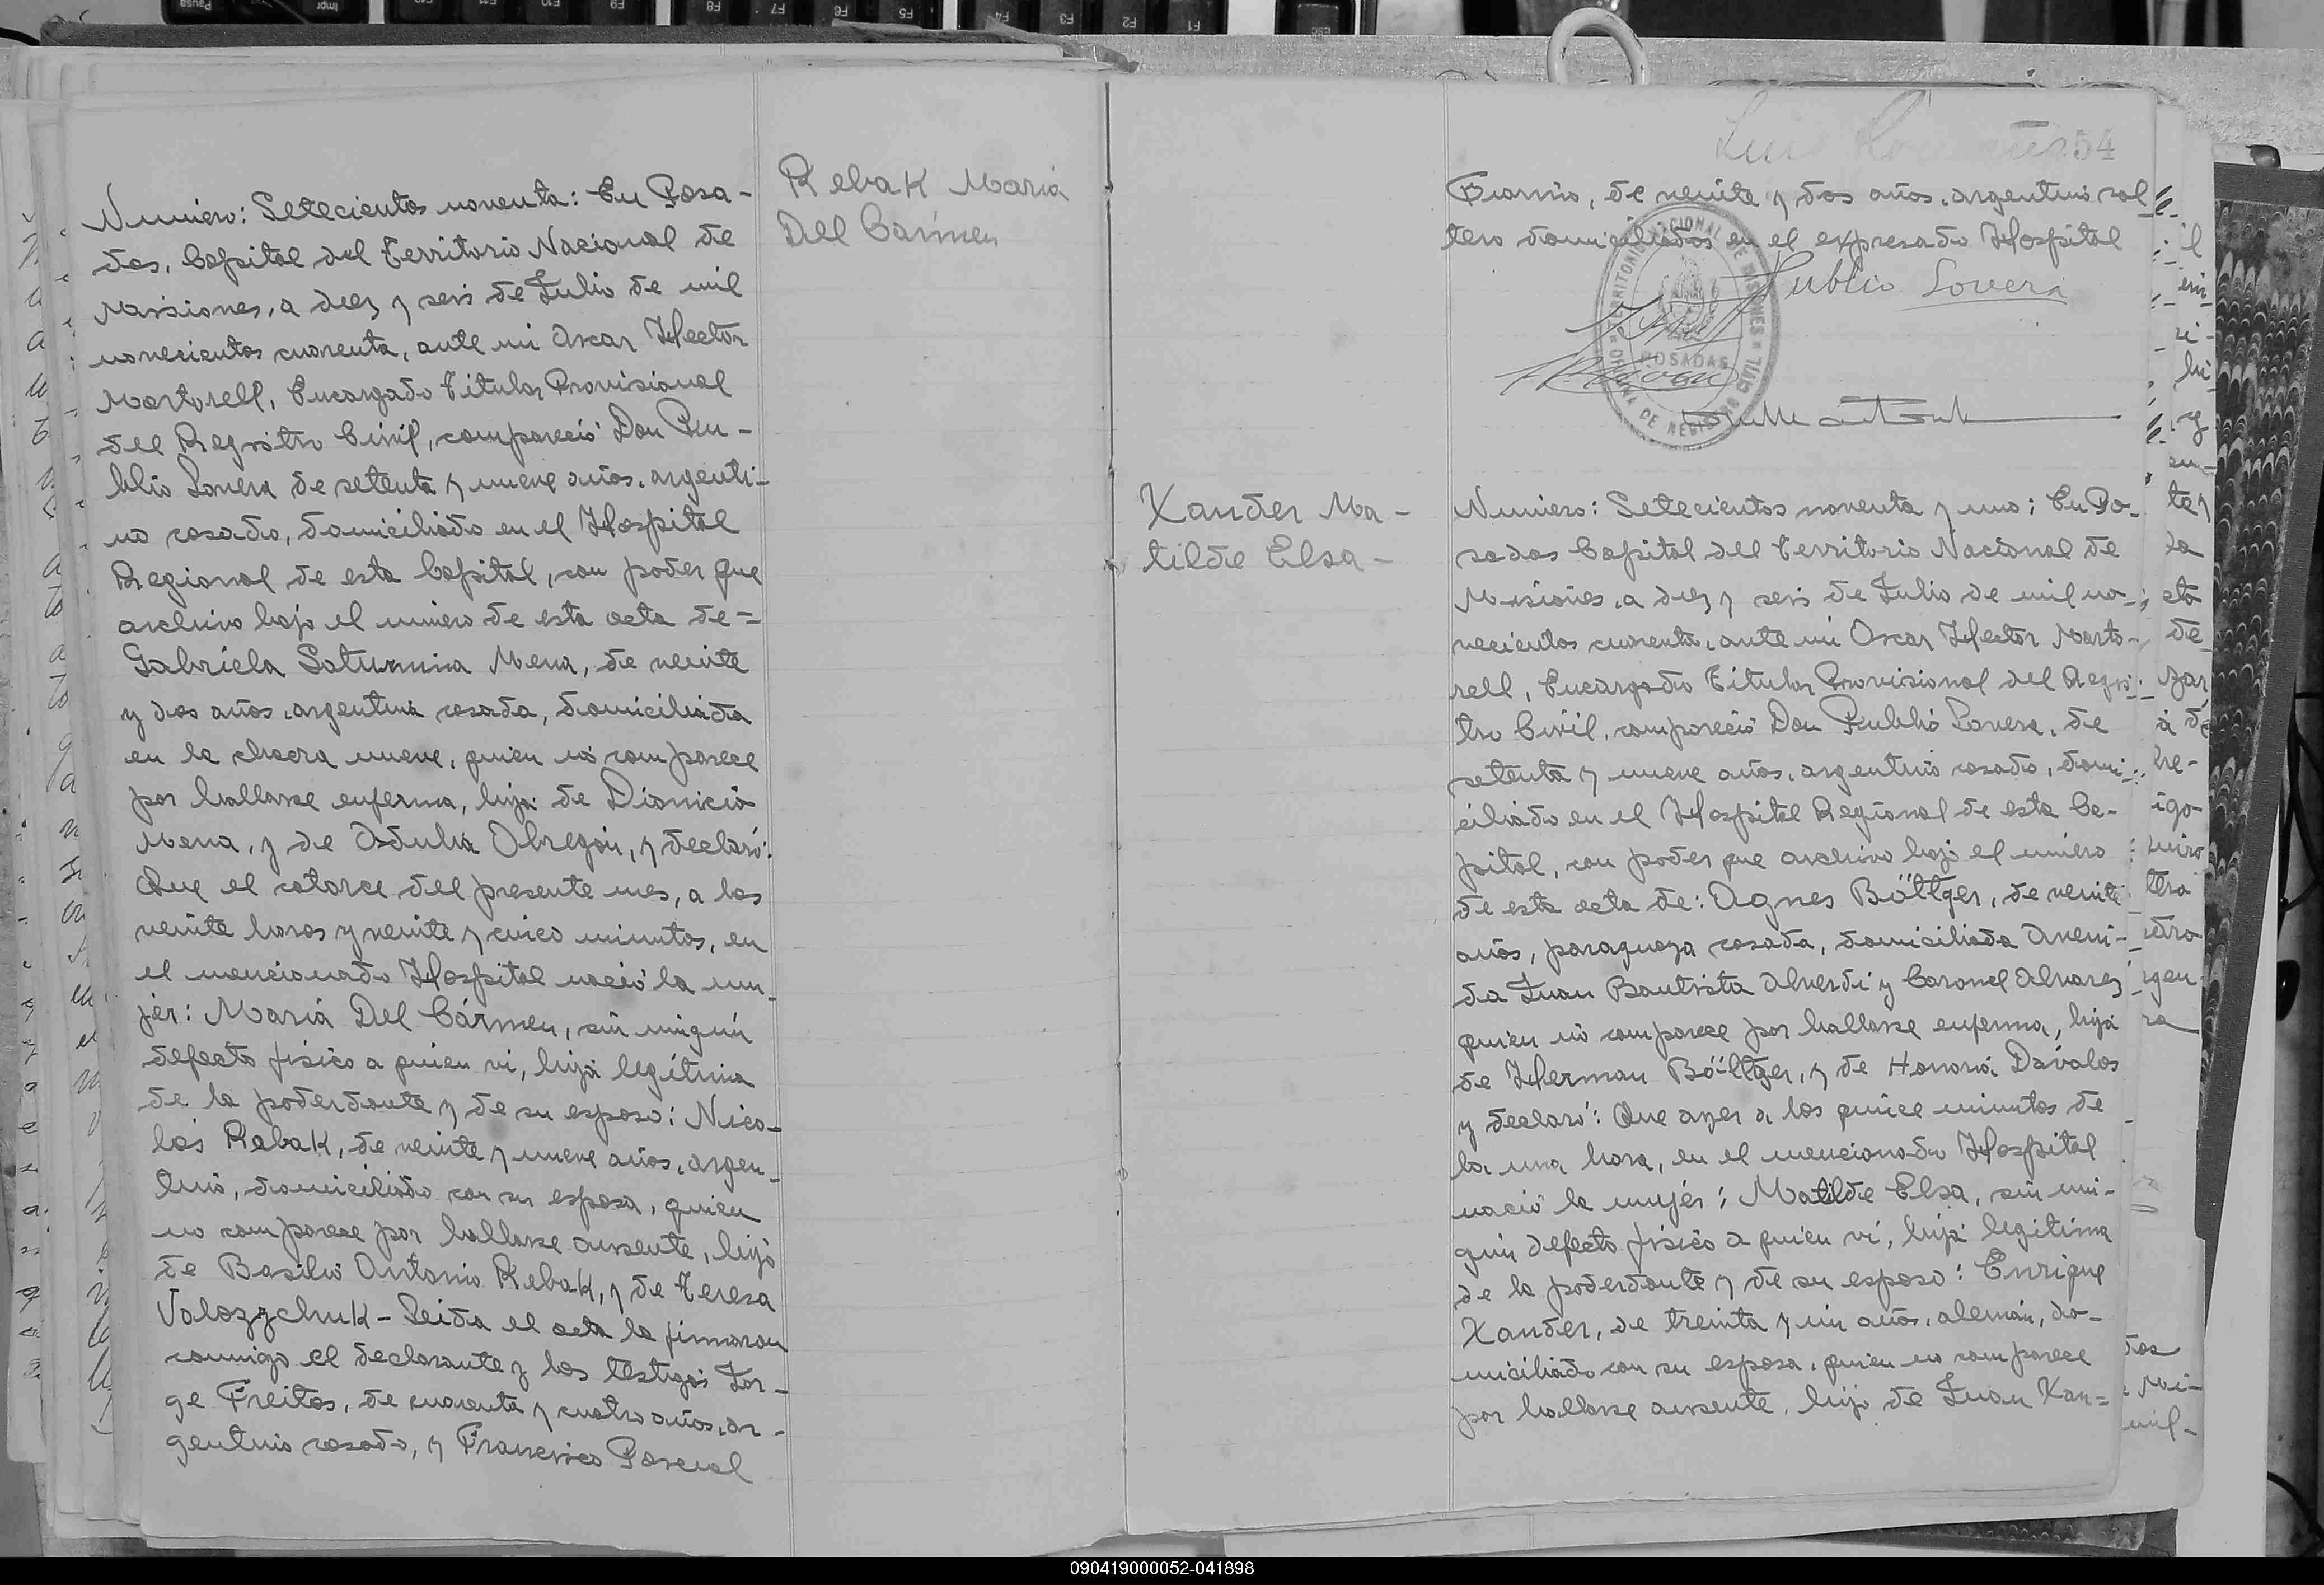 Rebak Maria
Del Cármen
Número: Setecientos noventa: En Posa-
das, Capital del Territorio Nacional de
Misiones, a diez y seis de Julio de mil
novecientos cuarenta, ante mi Oscar Hector
Martorell, Encargado Titular Provisional
del Registro Civil, compareció Don Pu-
blio Lovera de setenta y nueve años, argenti-
no casado, domiciliado en el Hospital
Regional de esta Capital, con poder que
archivo bajo el número de esta acta de=
Gabriela Saturnina Mena, de veinte
y dos años, argentina casada, domiciliada
en la chacra nueve, quien no comparece
por hallarse enferma, hija de Dionicio
Mena, y de Adulia Obregón, y declaró:
Que el catorce del presente mes, a las
veinte horas y veinte y cinco minutos, en
el mencionado Hospital nació la mu-
jér: Maria Del Cármen, sin ningún
defecto físico a quien vi, hija legítima
de la poderdante y de su esposo: Nico-
lás Rebak, de veinte y nueve años, argen-
tino, domiciliado con su esposa, quien
no comparece por hallarse ausente, hijo
de Basilio Antonio Rebak, y de Teresa
Volozzchuk- Leida el acta la firmaron
conmigo el declarante y los testigos Jor-
ge Freitas, de cuarenta y cuatro años, ar-
gentino casado, y Francisco Pascual
54
de veinte y dos años, argentino sol
tero domiciliados en el expresado Hospital
Publio Lovera
TERRITORIO NACIONAL DE MISIONES
POSADAS
OFICINA DE REGISTRO CIVIL
Xander Ma-
tilde Elsa-
Número: Setecientos noventa y uno: En Po-
sadas Capital del Territorio Nacional de
Misiones, a diez y seis de Julio de mil no-
vecientos cuarenta, ante mi Oscar Hector Marto-
rell, Encargado Titular Provisional del Regis-
tro Civil, compareció Don Publio Lovera, de
setenta y nueve años, argentino casado, domi-
ciliado en el Hospital Regional de esta Ca-
pital, con poder que archivo bajo el número
de esta acta de: Agnes Böttger, de veinte
años, paraguaya casada, domiciliada Aveni-
da Juan Bautista Alverdi y Coronel Alvarez
quien no comparece por hallarse enferma, hija
de Herman Böttger, y de Honoria Dávalos
y declaró: Que ayer a los quince minutos de
la una hora, en el mencionado Hospital
nació la mujér: Matilde Elsa, sin nin-
gún defecto físico a quien vi, hija legítima
de la poderdante y de su esposo: Enrique
Xander, de treinta y un años, alemán, do-
miciliado con su esposa, quien no comparece
por hallarse ausente, hijo de Juan Xan=
090419000052-041898